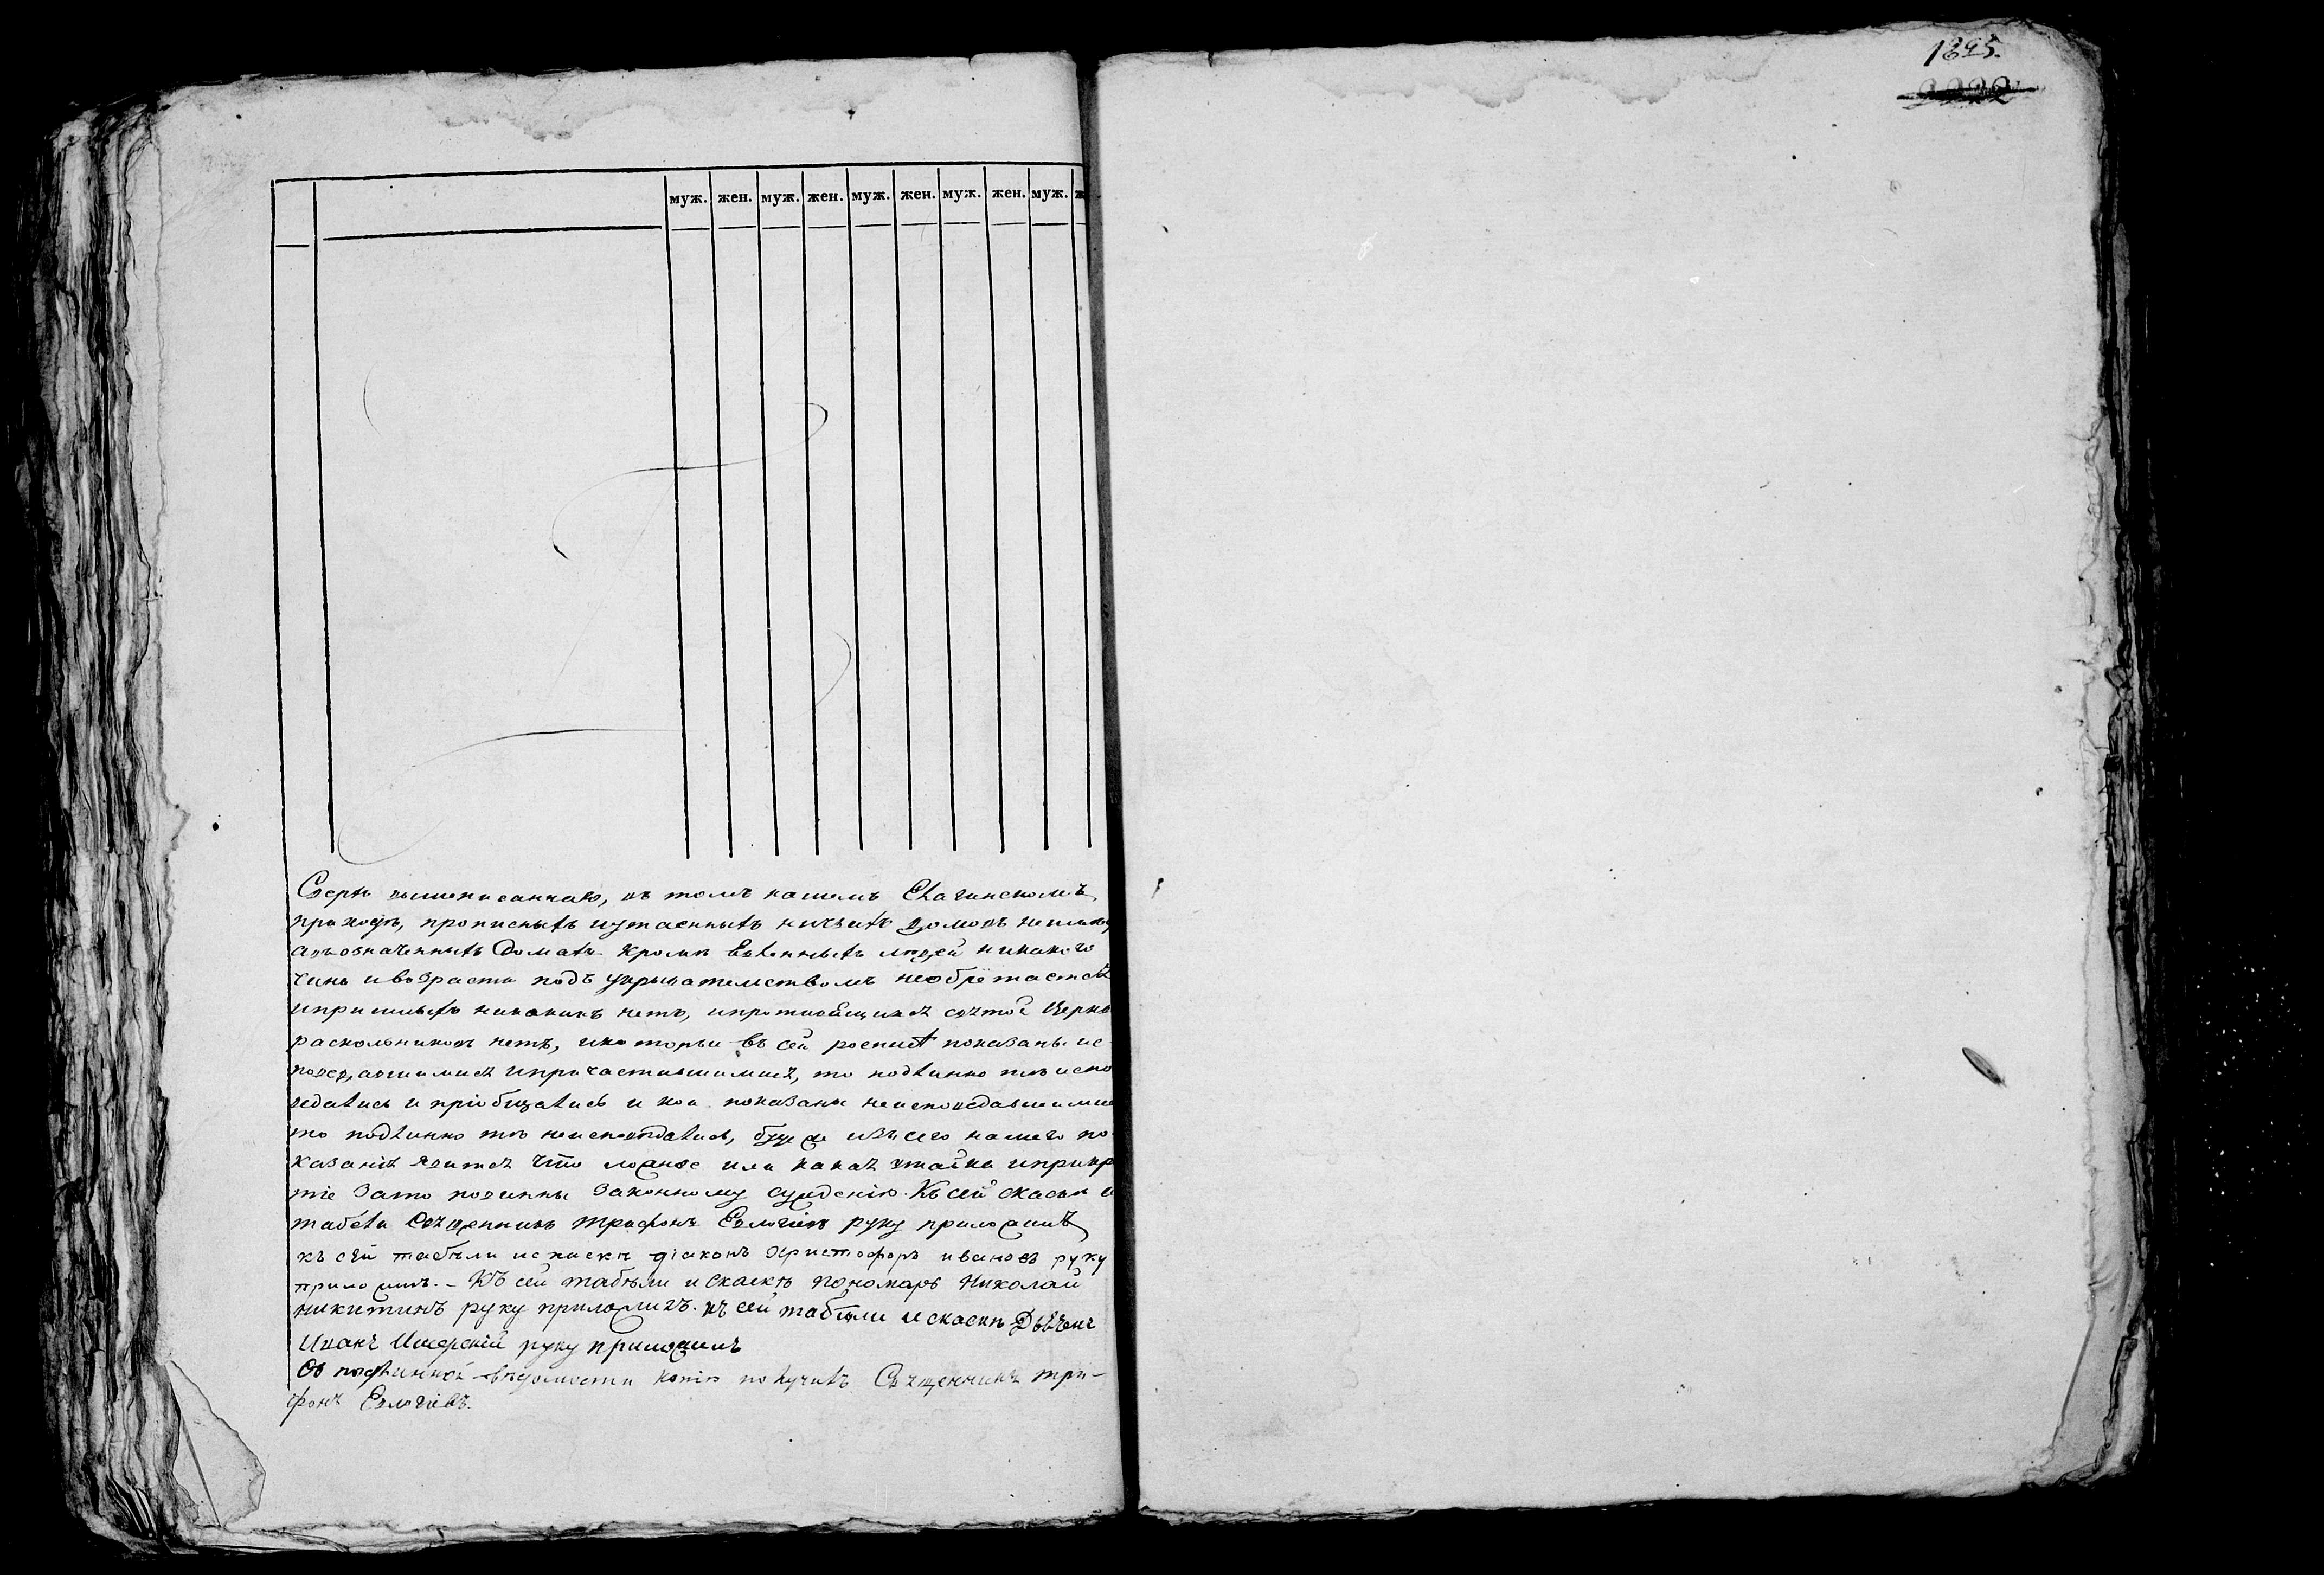 1895.
2222
муж. жен. муж. жен. муж. жен. муж. жен. муж. ж
Сверхъ вышеписаннаго, въ томъ нашемъ
приходѣ, прописныхъ иутаенныхъ ничьихъ домовъ неимѣ
авъозначенныхъ домахъ кромѣ людей никакого
чина ивозраста подъ укрывательствомъ необрѣтается
ипришлыхъ никакихъ нетъ, ипротивящихся святой Церкв
раскольниковъ нетъ, икоторыи въ сей росписѣ показаны ис
поведавшимися ипричастившимися, то подлинно тѣ испо
ведались и пріобщались и кои показаны неисповедавшимис
то подлинно тѣ неисповѣдались, буде же изъ сего нашего по
казанія явится что ложное или какая утайка иприкр
тіе зато повинны законному сужденію. Къ сей скаски и
табели Священникъ Трифонъ Евлогіевъ руку приложилъ
къ сей табели искаски діаконъ Христофоръ ивановъ руку
приложилъ. – Къ сей табѣли и скаскѣ пономарь Николай
никитинъ руку приложилъ. къ сей табѣли искаски Дьячекъ
Иванъ руку приложилъ
Съ подлинной вѣдомости копію получилъ Священникъ Три–
фонъ Евлогіевъ.